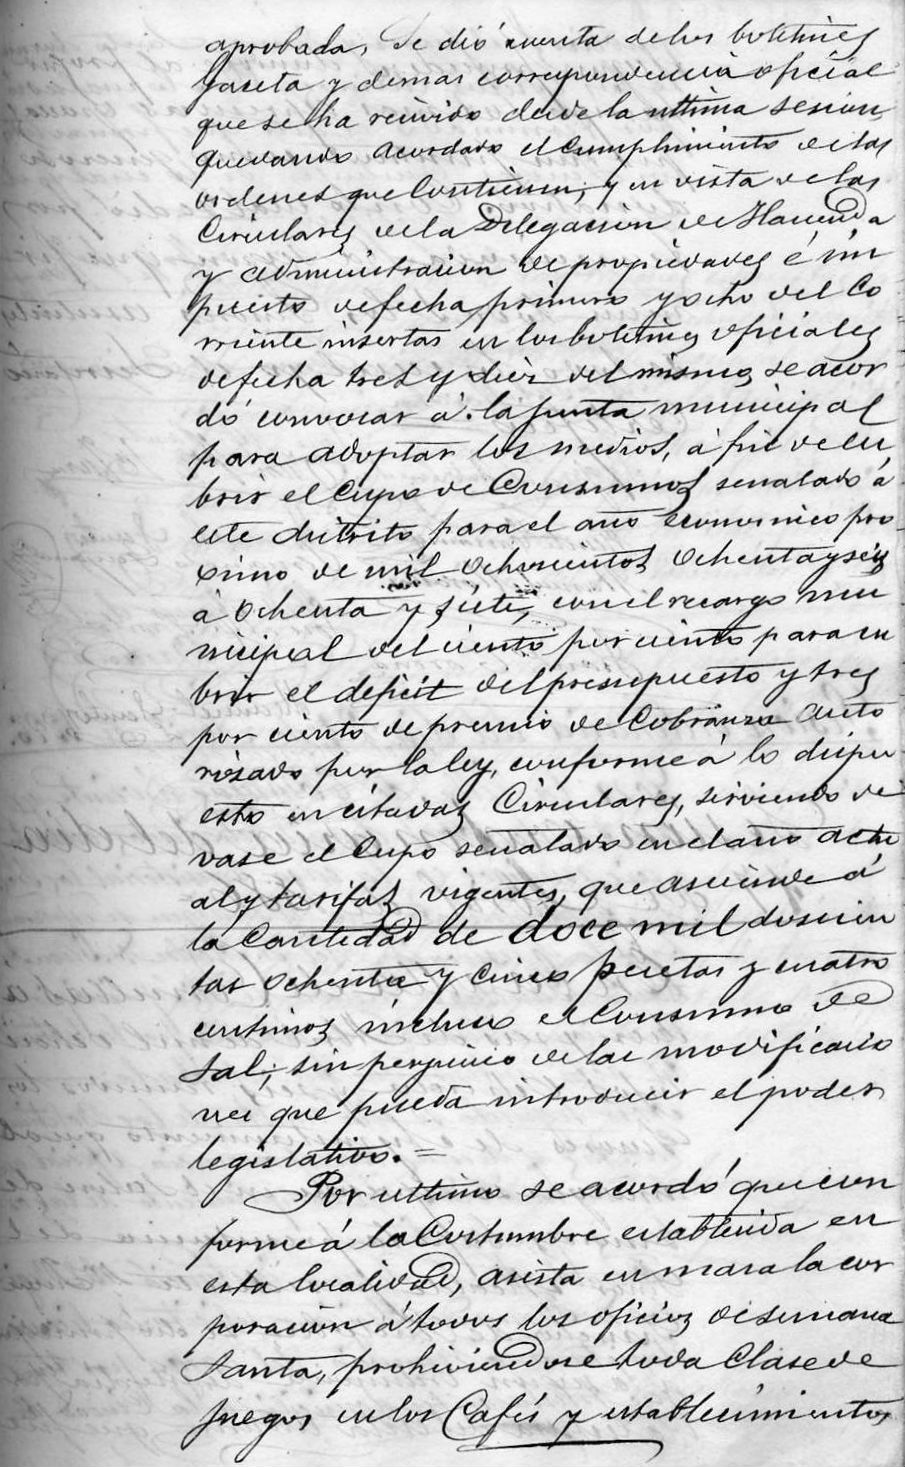 aprobada, Se dió cuenta de los boletines
Gaceta y demas correspondencia oficial
que se ha recivido desde la ultima sesion,
quedando acordado el cumplimiento de las
ordenes que contienen; y en vista de las
Circulares de la Delegacion de Hacienda
y administracion de propiedades é im
puesto de fecha primero y ocho del Co
rriente insertas en los boletines oficiales
de fecha tres y diez del mismo, se acor
dó convocar á la junta municipal
para adoptar los medios, á fin de cu
brir el Cupo de Consumos senalado á
este distrito para el año economico pro
ximo de mil ochocientos ochenta y seis
á ochenta y siete, con el recargo mu
nicipal del ciento por ciento para cu
brir el deficit del presupuesto y tres
por ciento de premio de Cobranza auto
rizado por la ley, conforme á lo dispu
esto en citadas Circulares, sirviendo de
vase el Cupo senalado en el año actu
al y tarifas vigentes, que asciende á
la Cantidad de doce mil doscien
tas ochenta y cinco pecetas y cuatro
centimos incluso el Consumo de
Sal; sin perjuicio de las modificacio
nes que pueda introducir el poder
legislativo. =
Por ultimo se acordó que con
forme á la Costumbre establecida en
esta localidad, asista en masa la cor
poracion á todos los oficios de semana
Santa, prohiviendose toda Clase de
juegos en los Cafés y establecimientos